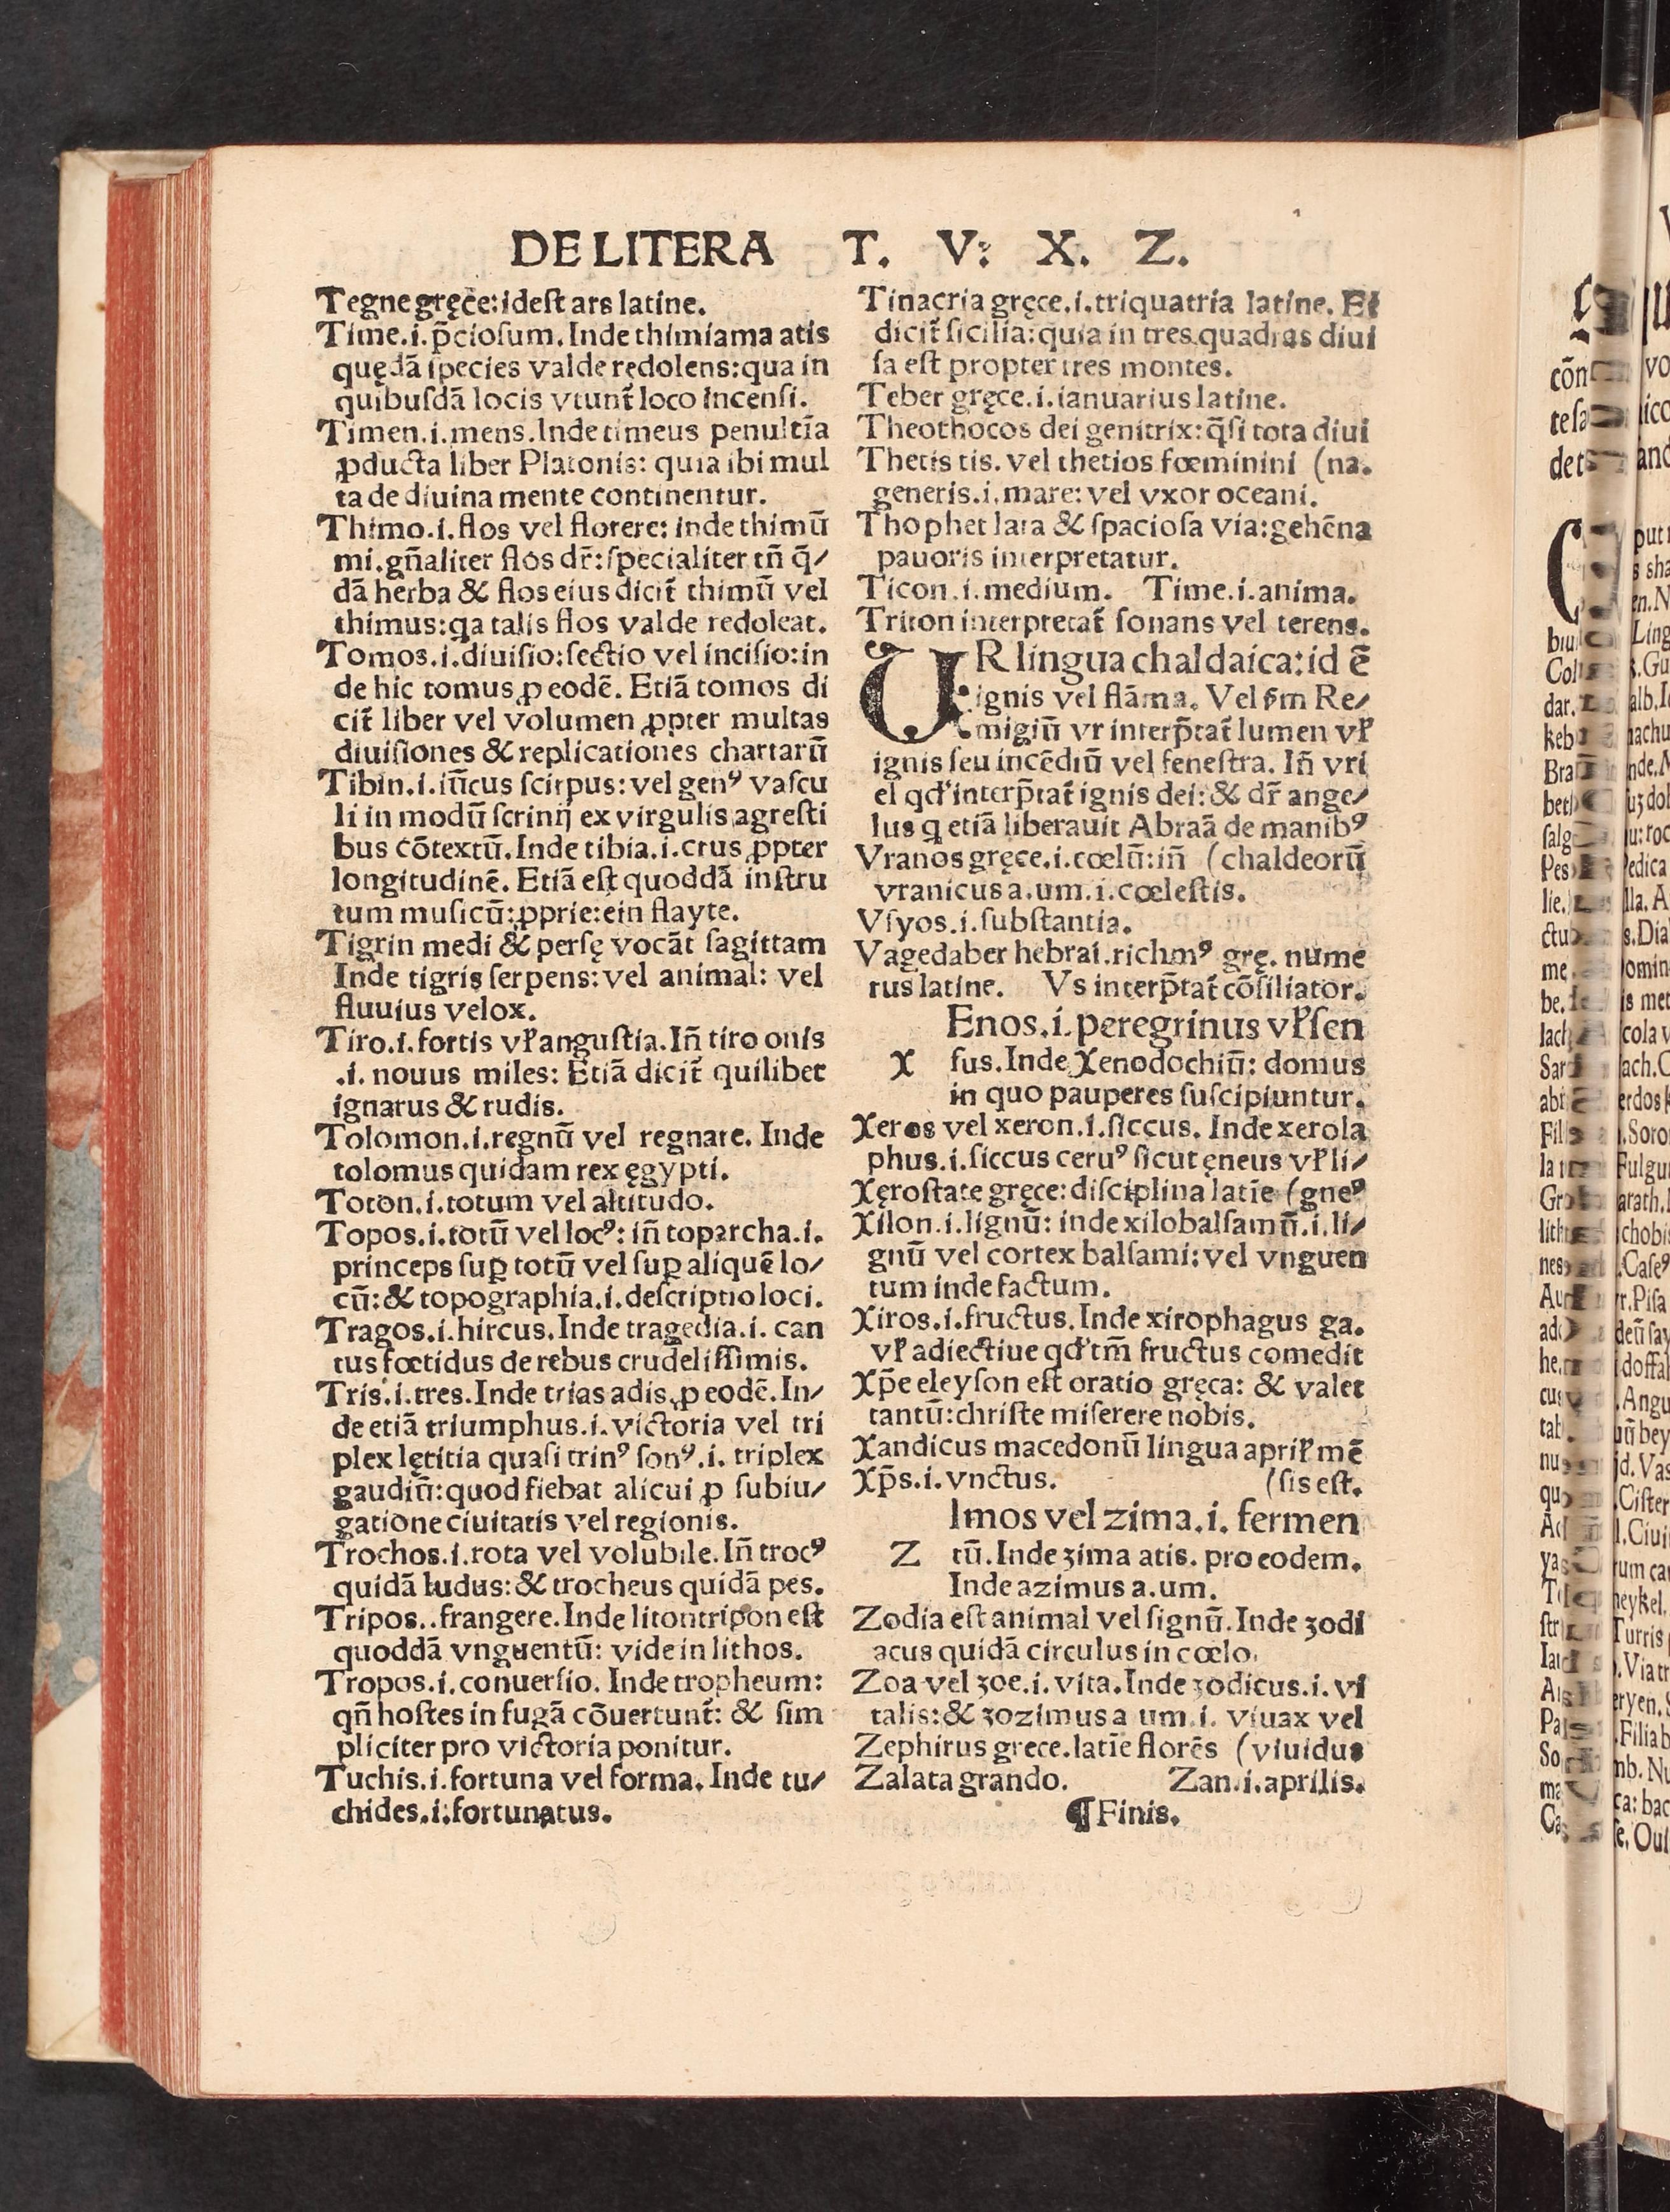 DE LITERA T. V: X. Z.
Tegne gręce: idest ars latine.
Time.i.p̄ciosum. Inde thimiama atis
quędā species valde redolens: qua in
quibusdā locis vtunt̄ loco incensi.
Timen.i.mens. Inde timeus penultīa
ꝓducta liber Platonis: quia ibi mul
ta de diuina mente continentur.
Thimo.i.flos vel florere: inde thimū
mi.gn̄aliter flos dr̄: specialiter tn̄ q̄⸗
dā herba & flos eius dicit̄ thimū vel
thimus: qa talis flos valde redoleat.
Tomos.i.diuisio: sectio vel incisio: in
de hic tomus ꝓ eodē. Etiā tomos di
cit̄ liber vel volumen ꝓpter multas
diuisiones & replicationes chartarū
Tibin.i.iūcus scirpus: vel genꝰ vascu
li in modū scrinij ex virgulis agresti
bus cōtextū. Inde tibia.i.crus ꝓpter
longitudinē. Etiā est quoddā instru
tum musicū: ꝓprie: ein flayte.
Tigrin medi & persę vocāt sagittam
Inde tigris serpens: vel animal: vel
fluuius velox.
Tiro.i.fortis vƚ angustia. In̄ tiro onis
.i. nouus miles: Etiā dicit̄ quilibet
ignarus & rudis.
Tolomon.i.regnū vel regnare. Inde
tolomus quidam rex ęgypti.
Toton.i.totum vel altitudo.
Topos.i.totū vel locꝰ: in̄ toparcha.i.
princeps suꝑ totū vel suꝑ aliquē lo⸗
cū: & topographia.i.descriptio loci.
Tragos.i.hircus. Inde tragedia.i. can
tus fœtidus de rebus crudelissimis.
Tris.i.tres. Inde trias adis ꝓ eodē. In⸗
de etiā triumphus.i.victoria vel tri
plex lętitia quasi trinꝰ sonꝰ.i. triplex
gaudiū: quod fiebat alicui ꝓ subiu⸗
gatione ciuitatis vel regionis.
Trochos.i.rota vel volubile. In̄ trocꝰ
quidā ludus: & trocheus quidā pes.
Tripos..frangere. Inde litontripon est
quoddā vnguentū: vide in lithos.
Tropos.i.conuersio. Inde tropheum:
qn̄ hostes in fugā cōuertunt̄: & sim
pliciter pro victoria ponitur.
Tuchis.i.fortuna vel forma. Inde tu⸗
chides.i.fortunatus.
Tinacria gręce.i.triquatria latine. Et
dicit̄ sicilia: quia in tres quadras diui
sa est propter tres montes.
Teber gręce.i.ianuarius latine.
Theothocos dei genitrix: q̄si tota diui
Thetis tis. vel thetios fœminini (na.
generis.i.mare: vel vxor oceani.
Thophet lata & spaciosa via: gehēna
pauoris interpretatur.
Ticon.i.medium. Time.i.anima.
Triton interpretat̄ sonans vel terens.
UR lingua chaldaica: id ē
ignis vel flāma. Vel ẜm Re⸗
migiū vr interp̄tat̄ lumen vƚ
ignis seu incēdiū vel fenestra. In̄ vri
el qď interp̄tat̄ ignis dei: & dr̄ ange⸗
lus q etiā liberauit Abraā de manibꝰ
Vranos gręce.i.cœlū: in̄ (chaldeorū
vranicus a.um.i.cœlestis.
Vsyos.i.substantia.
Vagedaber hebrai.richmꝰ grę. nume
rus latine. Vs interp̄tat̄ cōsiliator.
Enos.i.peregrinus vƚ sen
X sus. Inde Xenodochiū: domus
in quo pauperes suscipiuntur.
Xeros vel xeron.i.siccus. Inde xerola
phus.i.siccus ceruꝰ sicut ęneus vƚ li⸗
Xęrostate gręce: disciplina latīe (gneꝰ
Xilon.i.lignū: inde xilobalsamū.i.li⸗
gnū vel cortex balsami: vel vnguen
tum inde factum.
Xiros.i.fructus. Inde xirophagus ga.
vƚ adiectiue qď tm̄ fructus comedit
Xp̄e eleyson est oratio gręca: & valet
tantū: christe miserere nobis.
Xandicus macedonū lingua apriƚ mē
Xp̄s.i.vnctus. (sis est.
Imos vel zima.i. fermen
Z tū. Inde zima atis. pro eodem.
Inde azimus a.um.
Zodia est animal vel signū. Inde zodi
acus quidā circulus in cœlo.
Zoa vel zoe.i.vita. Inde zodicus.i.vi
talis: & zozimus a um.i. viuax vel
Zephirus grece.latīe florēs (viuidus
Zalata grando. Zan.i.aprilis.
¶ Finis.